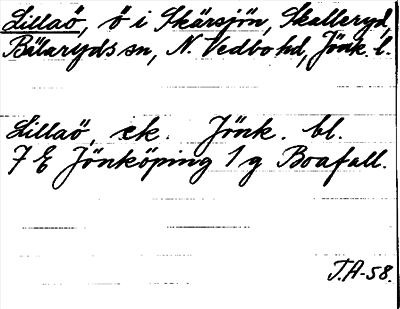 Lillaö, ö i Skärsjön, Skalleryd,
Bälaryds sn, N. Vedbo hd, Jönk. l.
Lillaö, ek. Jönk. bl.
7 E Jönköping 1 g Boafall.
T.A-58.